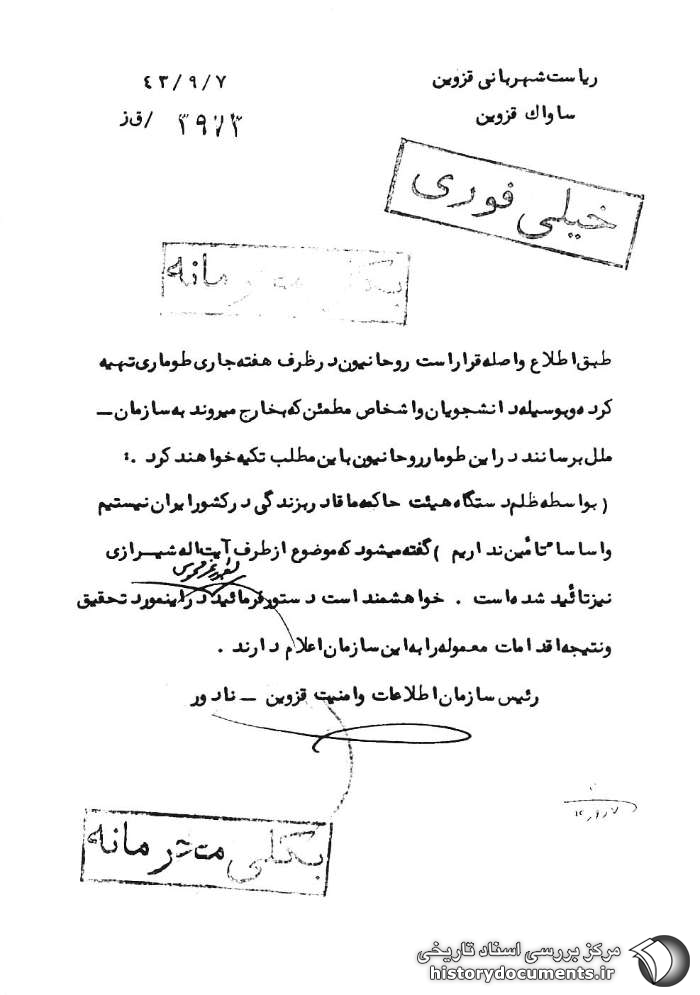 ریاست شهربانی قزوین
۴۳/۹/۷
ساواك قزوین
/ق ز
خیلی فوری
بکلی محرمانه
طبق اطلاع واصله قرار است روحانیون در ظرف هفته جاری طوماری تهیه
کرده و بوسیله دانشجویان و اشخاص مطمئن که بخارج میروند به سازمان –
ملل برسانند در این طومار روحانیون باین مطلب تکیه خواهند کرد .:
( بواسطه ظلم دستگاه هیئت حاکمه ما قادر بزندگی در کشور ایران نیستیم
و اساسا تأمین نداریم ) گفته میشود که موضوع از طرف آیت اله شیرازی
نیز تائید شده است . خواهشمند است دستور فرمائید در اینمورد تحقیق
و نتیجه اقدامات معموله را به این سازمان اعلام دارند .
رئیس سازمان اطلاعات و امنیت قزوین – نادور
بکلی محرمانه
مرکز بررسی اسناد تاریخی
historydocuments.ir